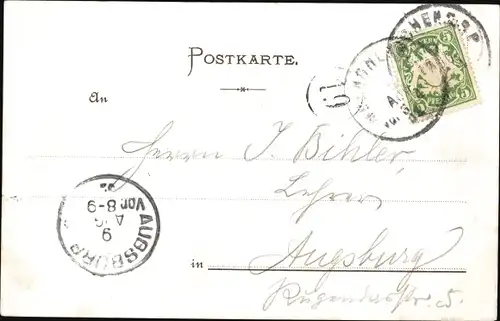 POSTKARTE.
An
Herrn J. Bihler,
Lehrer
in Augsburg
Rugendasstr. 5.
AUGSBURG
9
AUG
VOR. 8-9
5 5